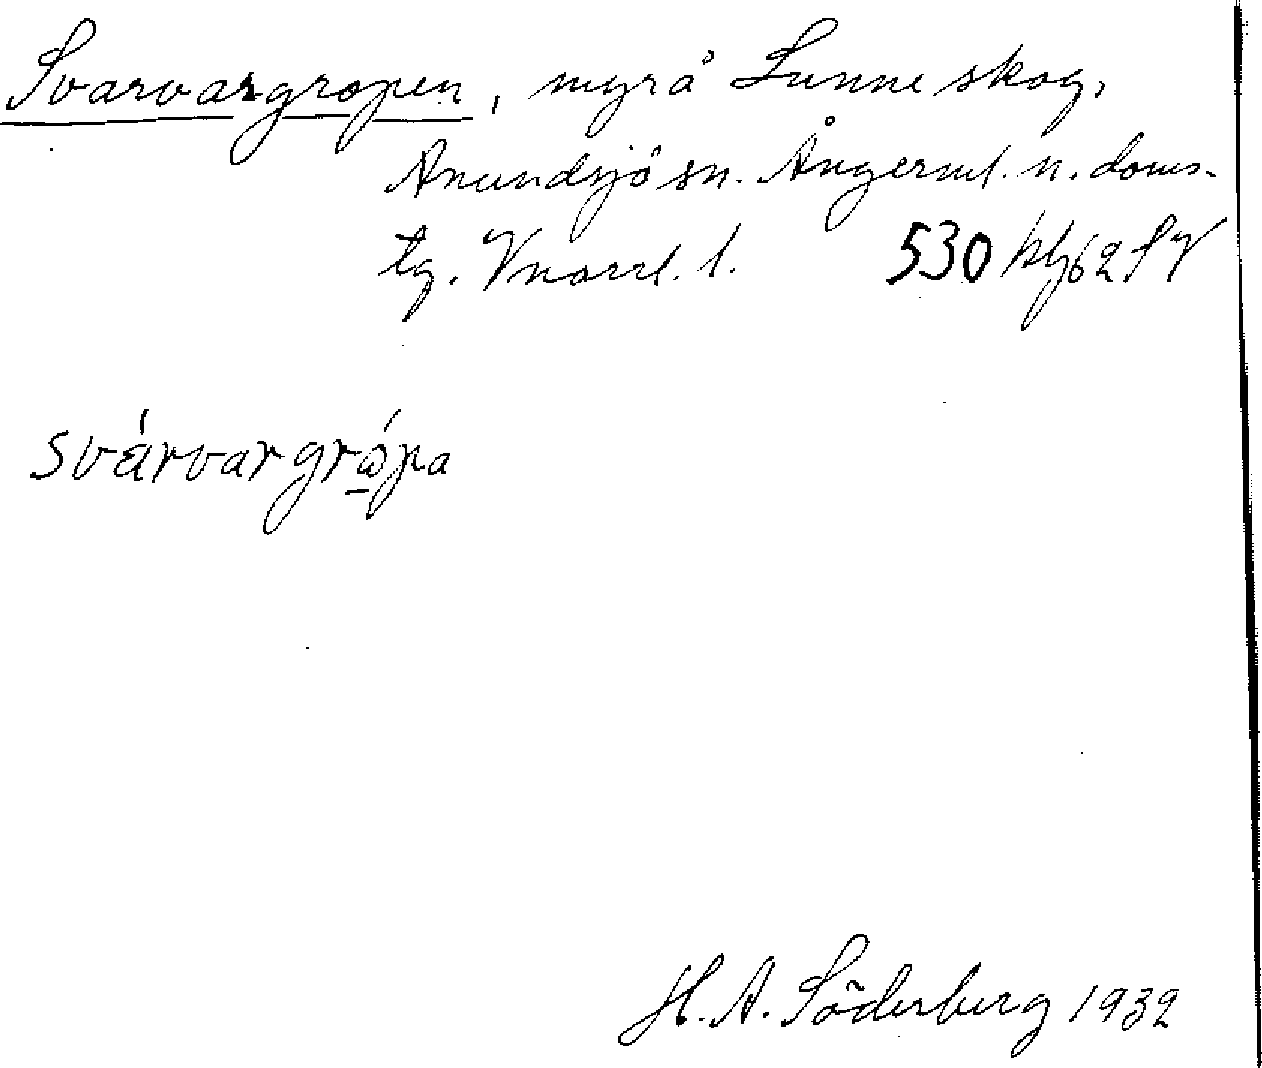 Svarvargropen, myr å Lunne skog,
Anundsjö sn. Ångerml. n. doms-
tg. Vnorrl. l. 530 klf 62 SV
svárvargrópa
H. A. Söderberg 1932